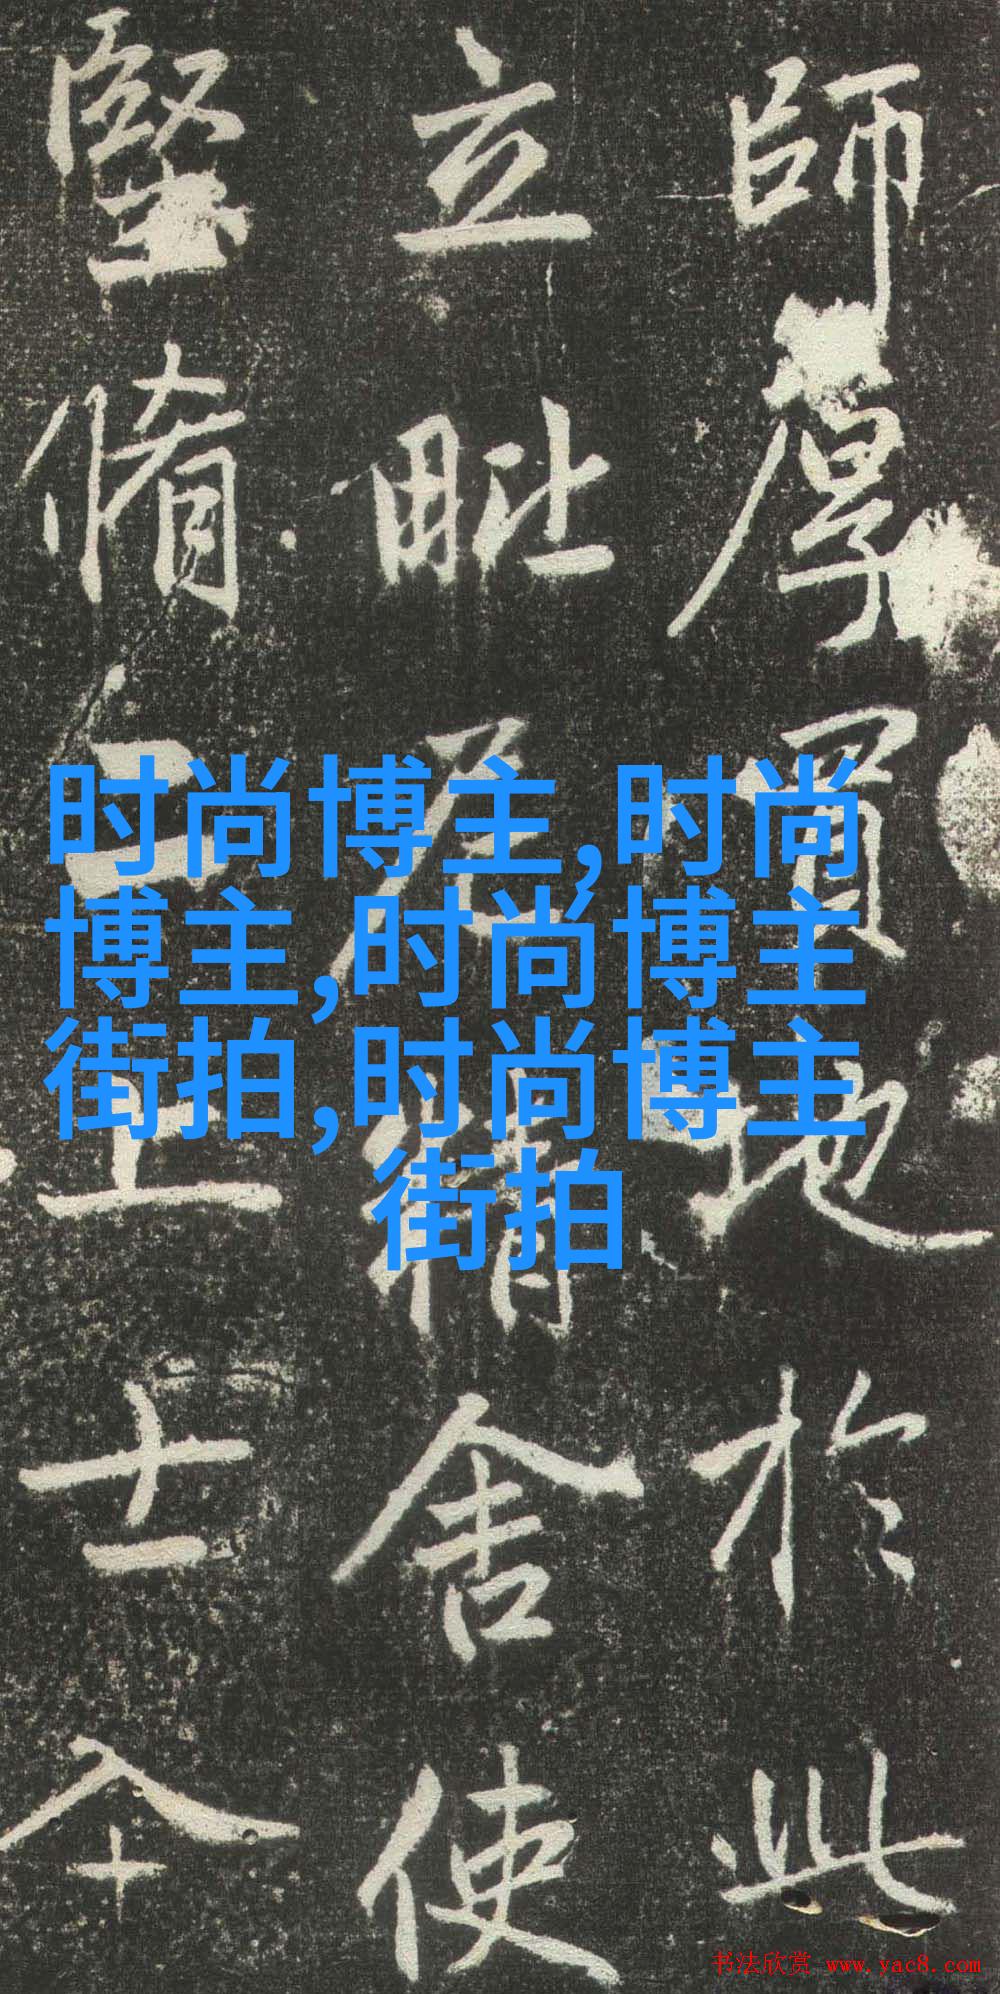 師厚買地於此
立毗尼精舍使
堅脩二上士
时尚博主,时尚
博主,时尚博主
街拍,时尚博主
街拍
书法欣赏 www.yac8.com